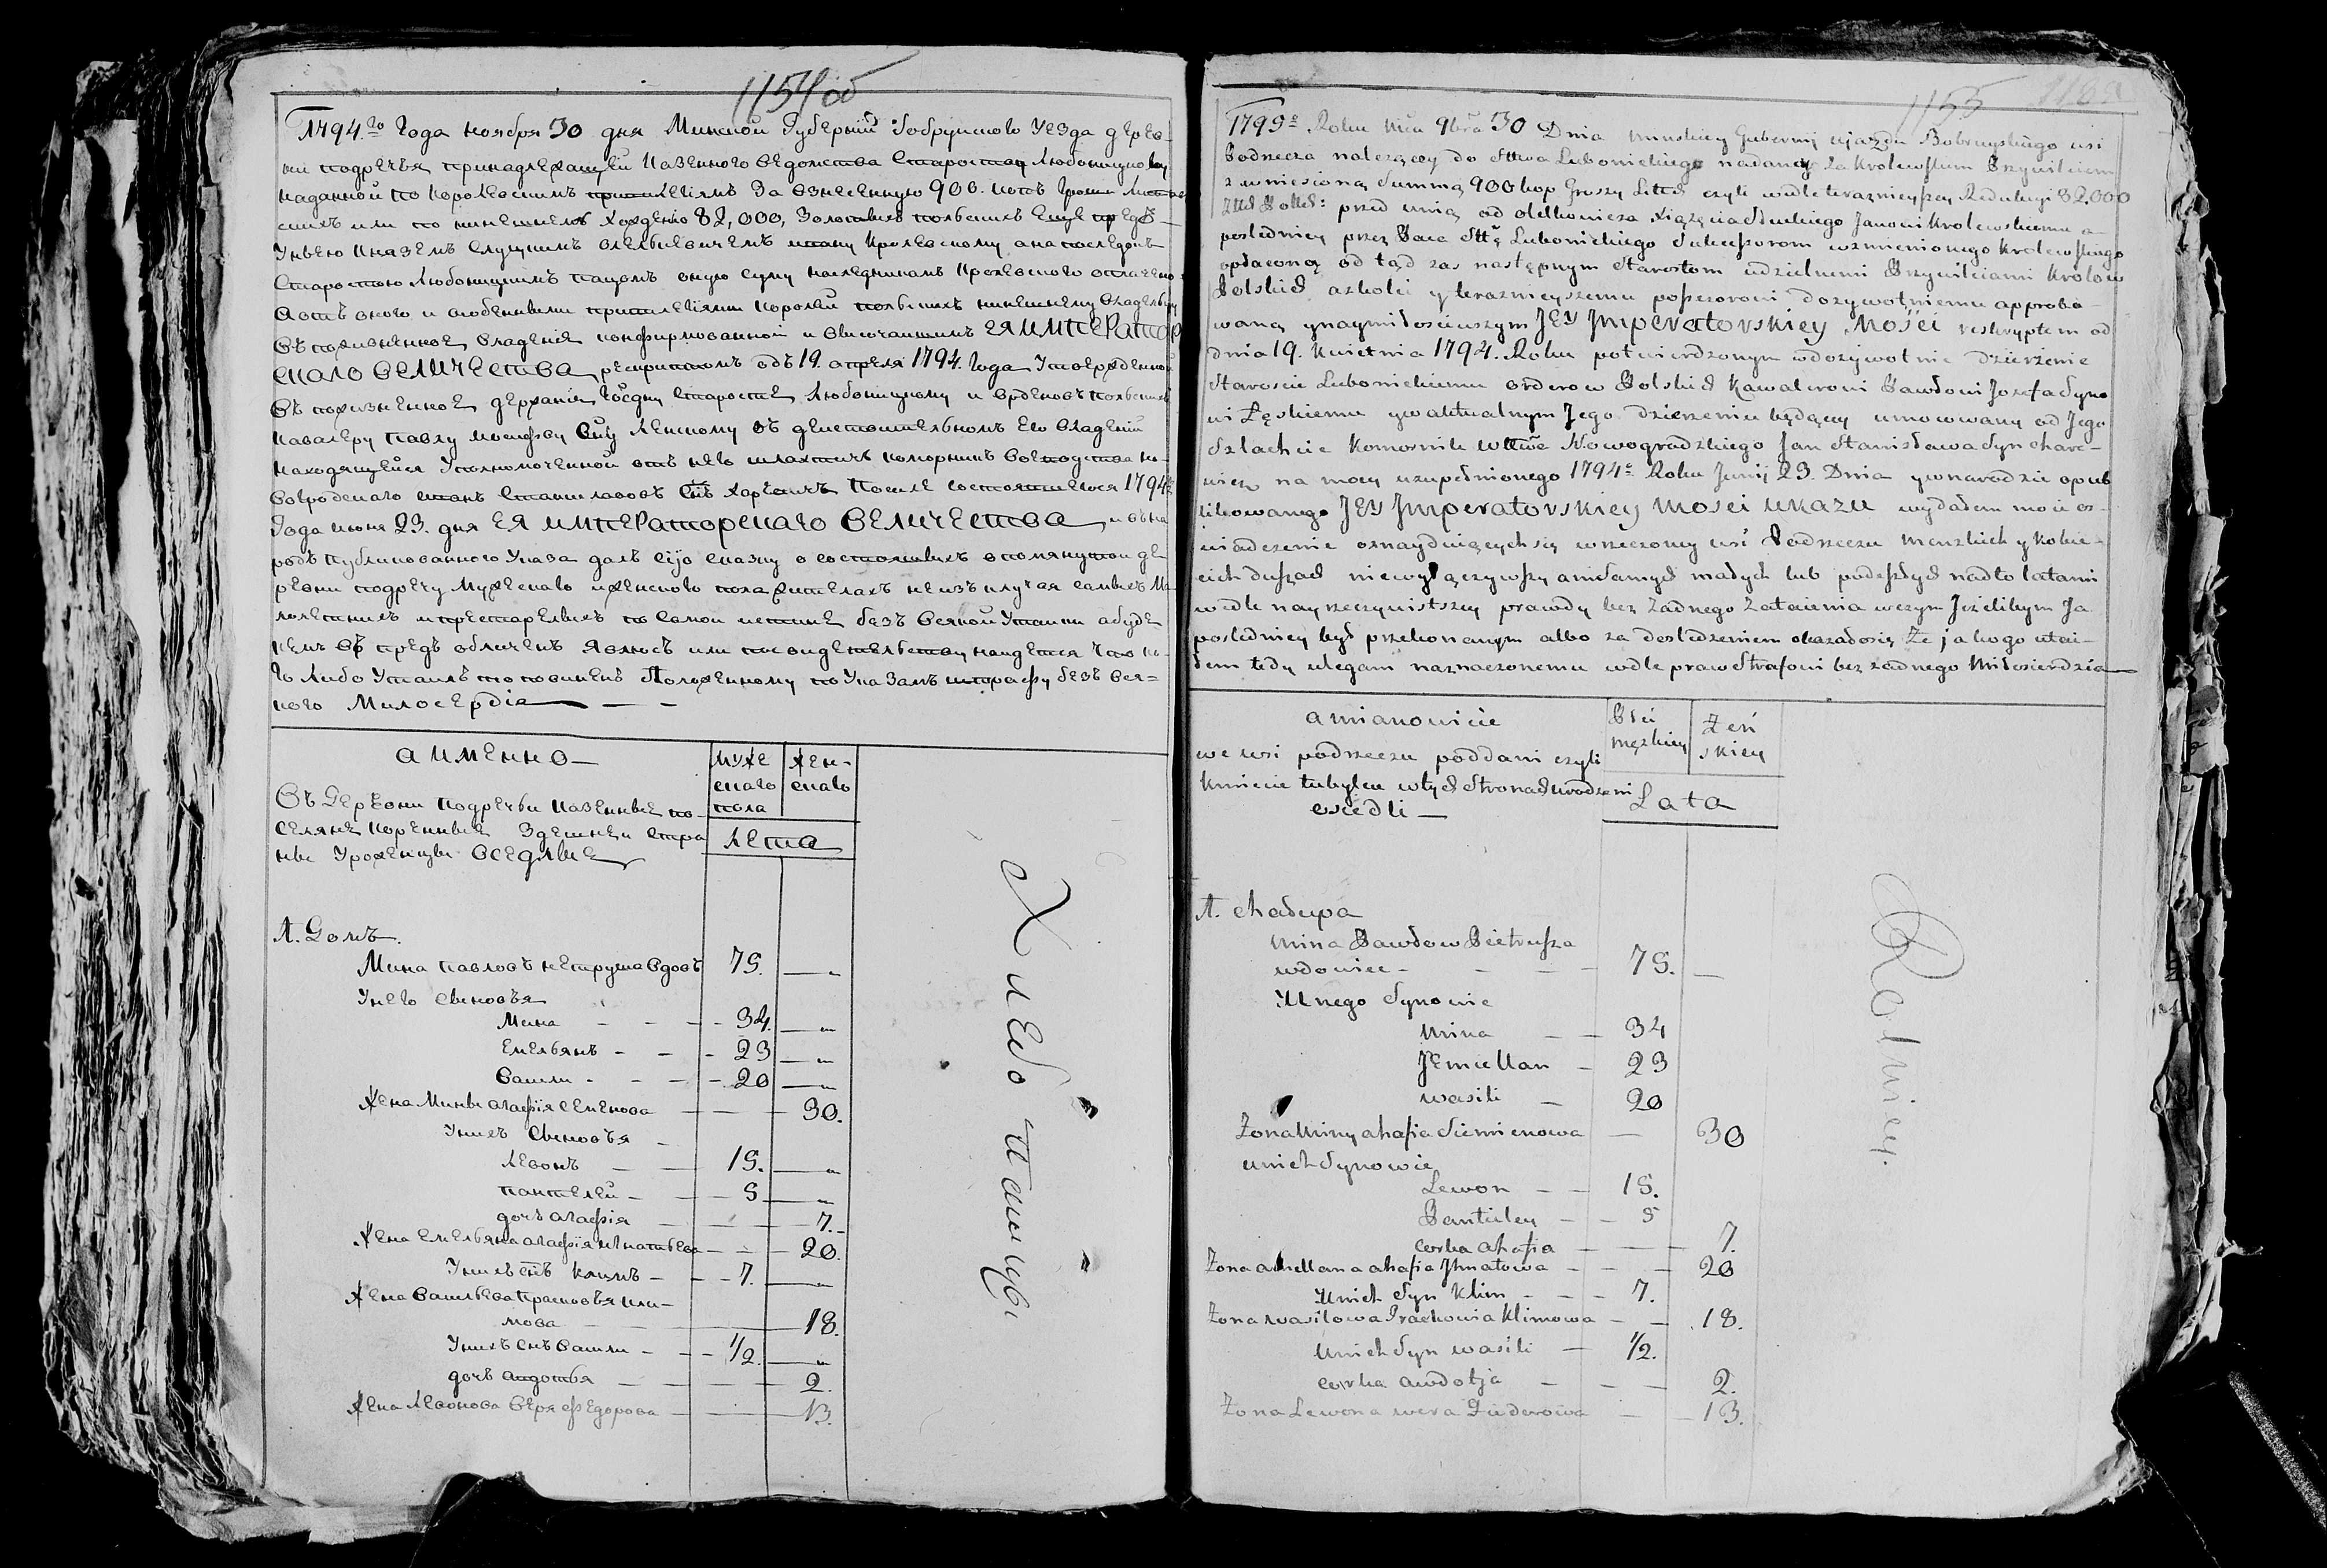 1154 об
1794.го Года ноября 30 дня Минской Губернїи Бобруйского Уезда дерев-
ни подречья принадлежащей Казенного ведомства Староства Любоницкому
наданной по королевским привилегїям За взнесенную 900. копъ Грошей
или по нинешнемъ хождению 82,000, Золотых польских еще
Княземъ Слуцкимъ Олелькевичемъ Яну Кролевскому а на последокъ
Старостою Любоницкимъ Пацомъ оную суму наследникамъ Кролевского оплачено
оного и особенными привилегїями королей польских нинешнему владельцу
въ пожизненное владенїе конфирмованной и высочаишимъ ЕЯ ИМПЕРАТОР
СКАГО ВЕЛИЧЕСТВА рескриптомъ одъ 19. апреля 1794. Года Утвержденной
въ пожизненное держанїе Старосте Любоницкому и орденовъ польских
Кавалеру Павлу Иосифову Сну Ленскому въ действительномъ Его владенїи
находящейся Уполномоченной отъ него шляхтичъ коморникъ воеводства но-
вогродскаго Янъ Станиславовъ Снъ Харевичъ После состоявшегося 1794го
Года июня 23. дня ЕЯ ИМПЕРАТОРСКАГО ВЕЛИЧЕСТВА, и въ на
родъ публикованного Указа далъ сїю сказку о состоявших в помянутой де
ревни подречу мужескаго и женского пола жителахъ не изключая самых ма
лолетних и престарелых по самой истине безъ всякой Утаики а буде
предъ обличенъ явлюсь или по свидетельству наидется что ко-
го либо Утаилъ то повиненъ Положенному по Указамъ штрафу безъ вся=
кого Милосердїя
а именно
муже
скаго
пола
жен-
скаго
Лета
Въ Деревни Подречьи Казенные по-
селяне коренные Здешней стра
ны Уроженцы оседлые
1. Домъ.
Мина Павловъ Петруша вдовъ 75.
У него сыновья
Мина 34.
Емельянъ 23
Васили 20
Жена Мины агафїя семенова 30.
У них сыновья
Левонъ 15.
Пантелей 5
дочь агафїя 7.
Жена Емельяна агафїя Игнатьева 20.
У них снъ Климъ 7.
Жена Васильева Прасковья Кли-
мова 18.
У них снъ Васили 1/2.
дочь авдотья 2.
Жена Левонова Вера Федорова 13.
Хлебопашцы
1155
1795о Roku Mca 9bra 30 Dnia Minskiey Gubernij ujazdu Bobruyskiego wsi
Podrzecza należącey do Sttwa Lubonickiego nadaney za Krolewskim Przywilejem
z wniesioną Summą 900 kop Groszy Litt: czyli wedle teraznieyszey Redukcyi 82,000
przed unią od Olelkowicza Xiążęcia Słuckiego Janowi Krolewskiemu a-
posledniey przez Paca Sttę Lubonickiego Sukcessorom wzmienionego Krolewskiego
opłaconą od tąd zas następnym Starostom udzielnemi Przywilejami Krolow
Polskich azkolei y teraznieyszemu possesorowi dożywotniemu approbo
waną y naymiłościwszym JEY Jmperatorskiey Mości reskryptem od
dnia 19. Kwietnia 1794. Roku potwierdzonym w dożywotnie dzierżenie
Staroscie Lubonickiemu orderow Polskich Kawalerowi Pawłowi Jozefa Syno
wi Łęskiemu y w aktualnym Jego dzierżeniu będącey umocowany od Jego
Szlachcic Komornik Wttwa Nowogradzkiego Jan Stanisława Syn Chare-
wicz na mocy uzupełnionego 1794o Roku Junij 23. Dnia y w narodzie opub
likowanego JEY Jmperatorskiey Mosci ukazu wydałem moie os-
wiadczenie o znayduiącychsię w rzeczoney wsi Podrzeczu Menzkich y Kobie-
cich duszach niewyłączywszy ani samych małych lub podeszłych nadto latami
wedle nayrzeczywistszey prawdy bez żadnego zataienia w czym Jeżelibym Ja
posledniey był przekonanym albo za dosledzeniem okazałosię że jakogo utai-
łem tedy ulegam naznaczonemu wedle praw Strafowi bez żadnego Miłosierdzia
a mianowicie
Płci
męzkiey
Żeń
skiey
we wsi podrzeczu poddani czyli
Kmiecie tubylcy w tych Stronach urodzeni
osiedli
Lata
1. Chałupa
Mina Pawłow Pietrusza
wdowiec 75.
U nego Synowie
Mina 34
Jemiellan 23
Wasili 20
Żona Miny ahafia Siemienowa 30
u nich Synowie
Lewon 15.
Pantieley 5
corka ahafia 7.
Żona amellana ahafia Jhnatowa 20
U nich Syn Klim 7.
Żona wasilowa Praskowia Klimowa 18.
U nich Syn wasili 1/2.
corka awdotja 2.
Żona Lewona wera Fiederowa 13.
Rolnicy.